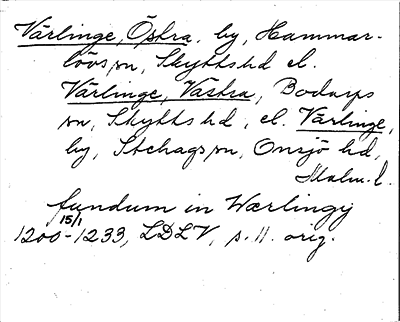 Värlinge, Östra, by, Hammar-
lövs sn, Skytts hd el.
Värlinge, Västra, Bodarps
sn, Skytts hd, el. Värlinge,
by, Stehags sn, Onsjö hd,
Malm. l.
fundum in Wærlingy
15/1
1200-1233, LDLV, s. 11. orig.